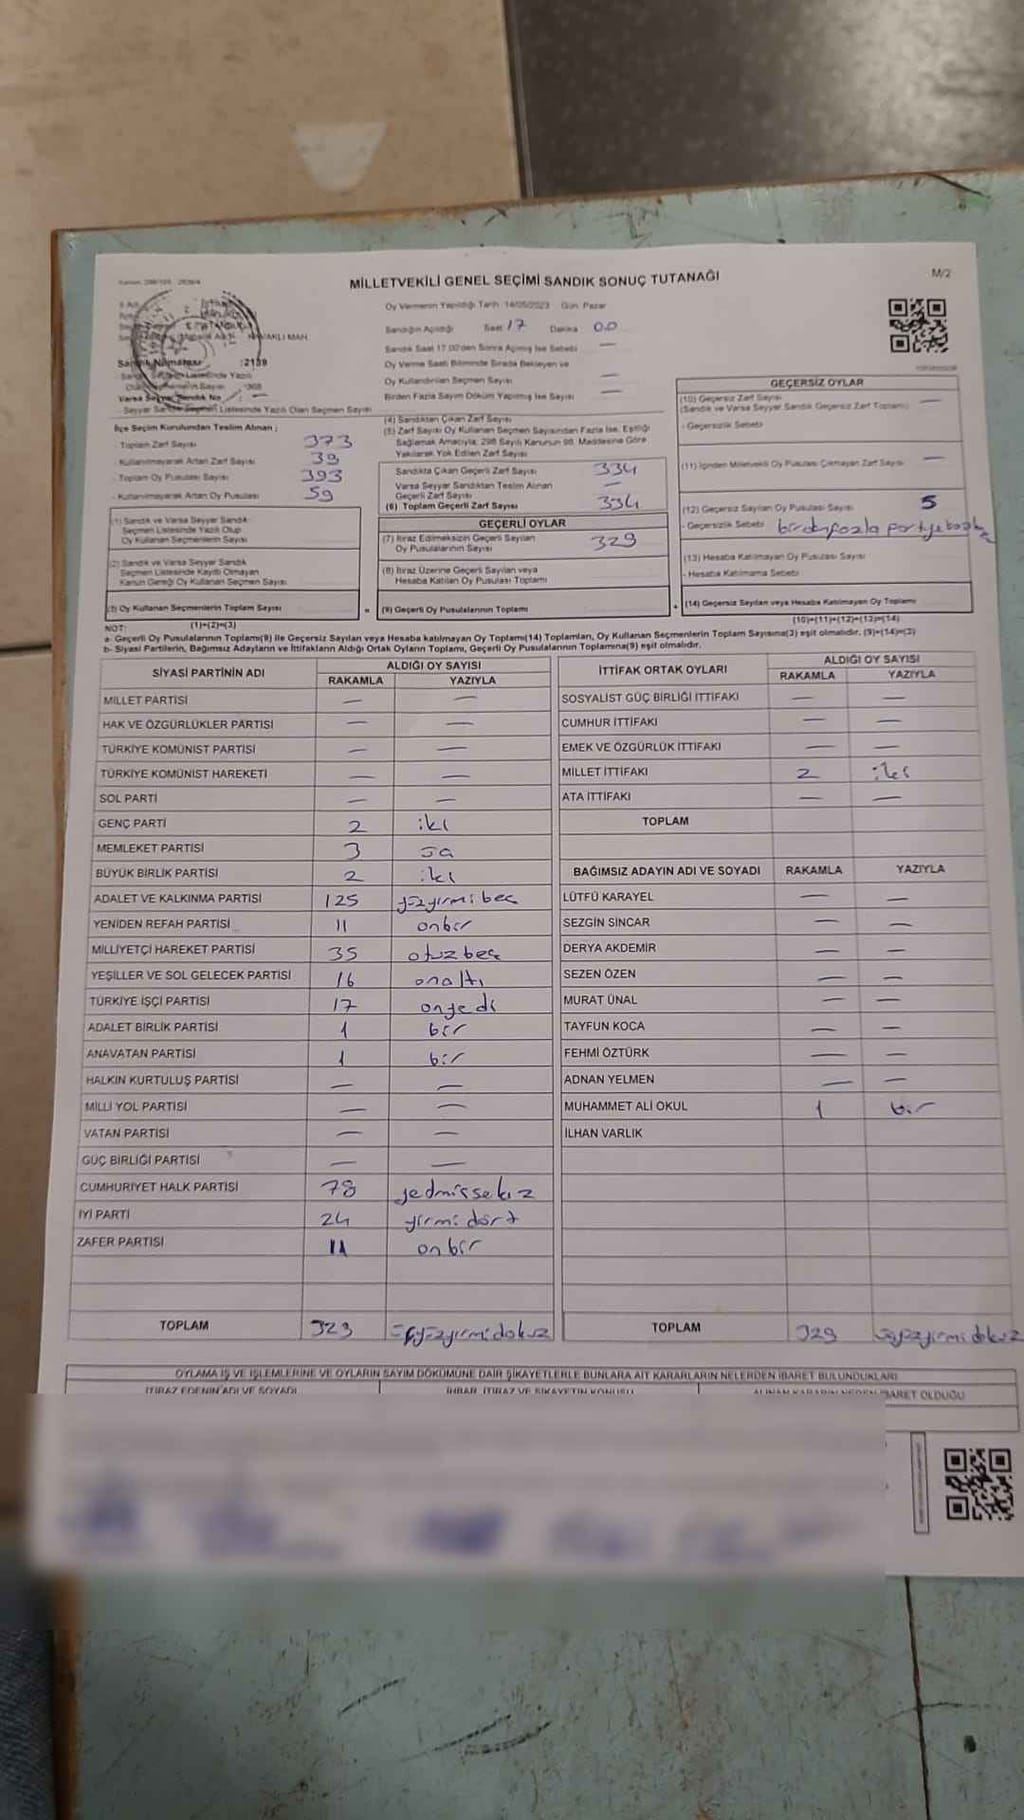 MİLLETVEKİLİ GENEL SEÇİMİ SANDIK SONUÇ TUTANAĞI
M/2
Oy Vermenin Yapıldığı Tarih: 14/05/2023 Gün: Pazar
Sandığın Açıldığı Saat 17 Dakika 00
Sandık Saat 17.00'den Sonra Açılmış İse Sebebi —
Oy Verme Saati Bitiminde Sırada Bekleyen ve
Oy Kullandırılan Seçmen Sayısı —
Birden Fazla Sayım Döküm Yapılmış İse Sayısı —
MAH.
Sandık Numarası :2139
Varsa Seyyar Sandık No : —
Seyyar Sandık Seçmen Listesinde Yazılı Olan Seçmen Sayısı
İlçe Seçim Kurulundan Teslim Alınan ;
- Toplam Zarf Sayısı 373
- Kullanılmayarak Artan Zarf Sayısı 39
- Toplam Oy Pusulası Sayısı 393
- Kullanılmayarak Artan Oy Pusulası 59
(1) Sandık ve Varsa Seyyar Sandık
Seçmen Listesinde Yazılı Olup
Oy Kullanan Seçmenlerin Sayısı
(2) Sandık ve Varsa Seyyar Sandık
Seçmen Listesinde Kayıtlı Olmayan
Kanun Gereği Oy Kullanan Seçmen Sayısı
(3) Oy Kullanan Seçmenlerin Toplam Sayısı =
(4) Sandıktan Çıkan Zarf Sayısı
(5) Zarf Sayısı Oy Kullanan Seçmen Sayısından Fazla İse, Eşitliği
Sağlamak Amacıyla; 298 Sayılı Kanunun 98. Maddesine Göre
Yakılarak Yok Edilen Zarf Sayısı
Sandıkta Çıkan Geçerli Zarf Sayısı 334
Varsa Seyyar Sandıktan Teslim Alınan
Geçerli Zarf Sayısı —
(6) Toplam Geçerli Zarf Sayısı 334
GEÇERLİ OYLAR
(7) İtiraz Edilmeksizin Geçerli Sayılan
Oy Pusulalarının Sayısı 329
(8) İtiraz Üzerine Geçerli Sayılan veya
Hesaba Katılan Oy Pusulası Toplamı
(9) Geçerli Oy Pusulalarının Toplamı +
GEÇERSİZ OYLAR
(10) Geçersiz Zarf Sayısı —
(Sandık ve Varsa Seyyar Sandık Geçersiz Zarf Toplamı)
- Geçersizlik Sebebi
(11) İçinden Milletvekili Oy Pusulası Çıkmayan Zarf Sayısı —
(12) Geçersiz Sayılan Oy Pusulası Sayısı 5
- Geçersizlik Sebebi birden fazla partiye
(13) Hesaba Katılmayan Oy Pusulası Sayısı
- Hesaba Katılmama Sebebi
(14) Geçersiz Sayılan veya Hesaba Katılmayan Oy Toplamı
NOT: (1)+(2)=(3) (10)+(11)+(12)+(13)=(14)
a- Geçerli Oy Pusulalarının Toplamı(9) ile Geçersiz Sayılan veya Hesaba katılmayan Oy Toplamı(14) Toplamları, Oy Kullanan Seçmenlerin Toplam Sayısına(3) eşit olmalıdır. (9)+(14)=(3)
b- Siyasi Partilerin, Bağımsız Adayların ve İttifakların Aldığı Ortak Oyların Toplamı, Geçerli Oy Pusulalarının Toplamına(9) eşit olmalıdır.
SİYASİ PARTİNİN ADI ALDIĞI OY SAYISI
RAKAMLA YAZIYLA
MİLLET PARTİSİ — —
HAK VE ÖZGÜRLÜKLER PARTİSİ — —
TÜRKİYE KOMÜNİST PARTİSİ — —
TÜRKİYE KOMÜNİST HAREKETİ — —
SOL PARTİ — —
GENÇ PARTİ 2 iki
MEMLEKET PARTİSİ 3
BÜYÜK BİRLİK PARTİSİ 2 iki
ADALET VE KALKINMA PARTİSİ 125 yüzyirmibeş
YENİDEN REFAH PARTİSİ 11 onbir
MİLLİYETÇİ HAREKET PARTİSİ 35 otuzbeş
YEŞİLLER VE SOL GELECEK PARTİSİ 16 onaltı
TÜRKİYE İŞÇİ PARTİSİ 17 onyedi
ADALET BİRLİK PARTİSİ 1 bir
ANAVATAN PARTİSİ 1 bir
HALKIN KURTULUŞ PARTİSİ — —
MİLLİ YOL PARTİSİ — —
VATAN PARTİSİ — —
GÜÇ BİRLİĞİ PARTİSİ — —
CUMHURİYET HALK PARTİSİ 78 yedmişsekiz
İYİ PARTİ 24 yirmidört
ZAFER PARTİSİ 11 onbir
TOPLAM 329 üçyüzyirmidokuz
İTTİFAK ORTAK OYLARI ALDIĞI OY SAYISI
RAKAMLA YAZIYLA
SOSYALİST GÜÇ BİRLİĞİ İTTİFAKI — —
CUMHUR İTTİFAKI — —
EMEK VE ÖZGÜRLÜK İTTİFAKI — —
MİLLET İTTİFAKI 2 iki
ATA İTTİFAKI — —
TOPLAM
BAĞIMSIZ ADAYIN ADI VE SOYADI RAKAMLA YAZIYLA
LÜTFÜ KARAYEL — —
SEZGİN SİNCAR — —
DERYA AKDEMİR — —
SEZEN ÖZEN — —
MURAT ÜNAL — —
TAYFUN KOCA — —
FEHMİ ÖZTÜRK — —
ADNAN YELMEN — —
MUHAMMET ALİ OKUL 1 bir
İLHAN VARLIK
TOPLAM 329 üçyüzyirmidokuz
OYLAMA İŞ VE İŞLEMLERİNE VE OYLARIN SAYIM DÖKÜMÜNE DAİR ŞİKAYETLERLE BUNLARA AİT KARARLARIN NELERDEN İBARET BULUNDUKLARI
İTİRAZ EDENİN ADI VE SOYADI İHBAR, İTİRAZ VE ŞİKAYETİN KONUSU ALINAN KARARIN NEDEN İBARET OLDUĞU